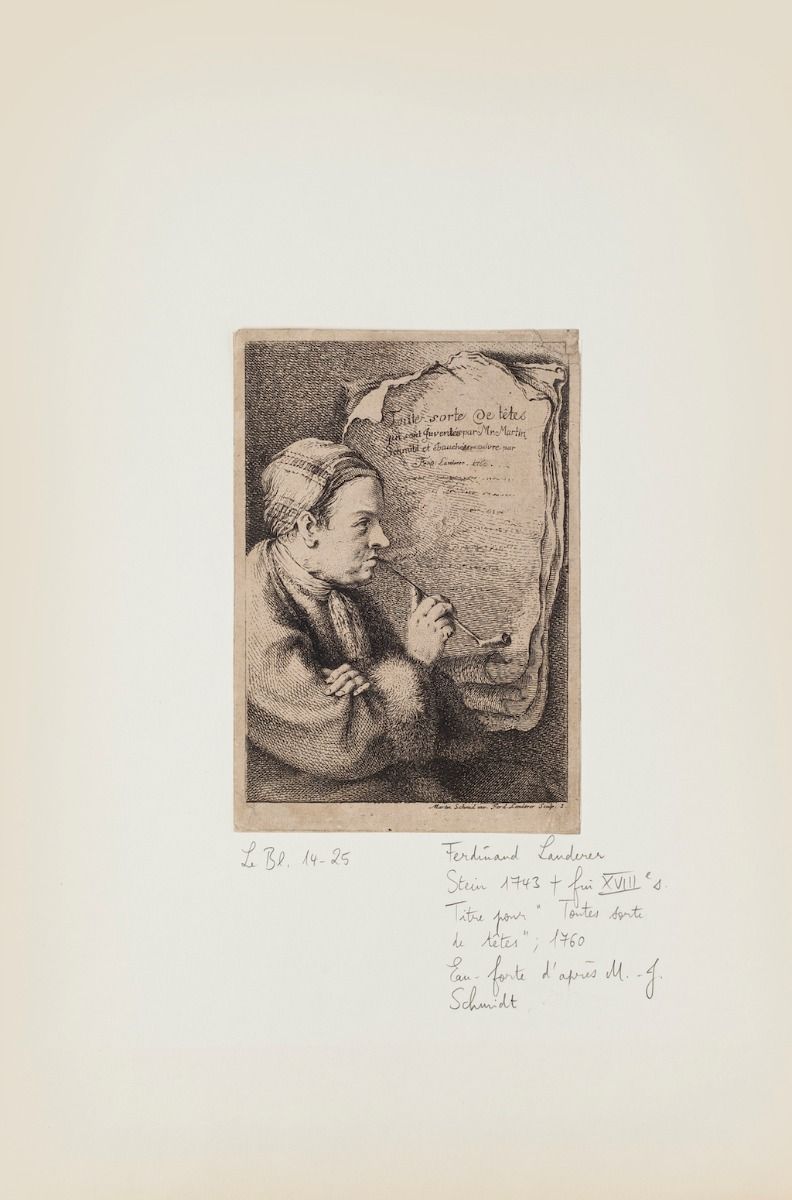 Toutte sorte De têtes
qui sont Inventéspar Mr. Martin
Schmitt et par
Ferd: Landerer. 1760.
Martin Schmid inv. Ferd. Landerer Sculp. 1
Le Bl. 14-25
Ferdinand Landerer
Stein 1743 † fin XVIIIe s.
Titre pour " Toutes sorte
de têtes"; 1760
Eau-forte d'après M.-J.
Schmidt